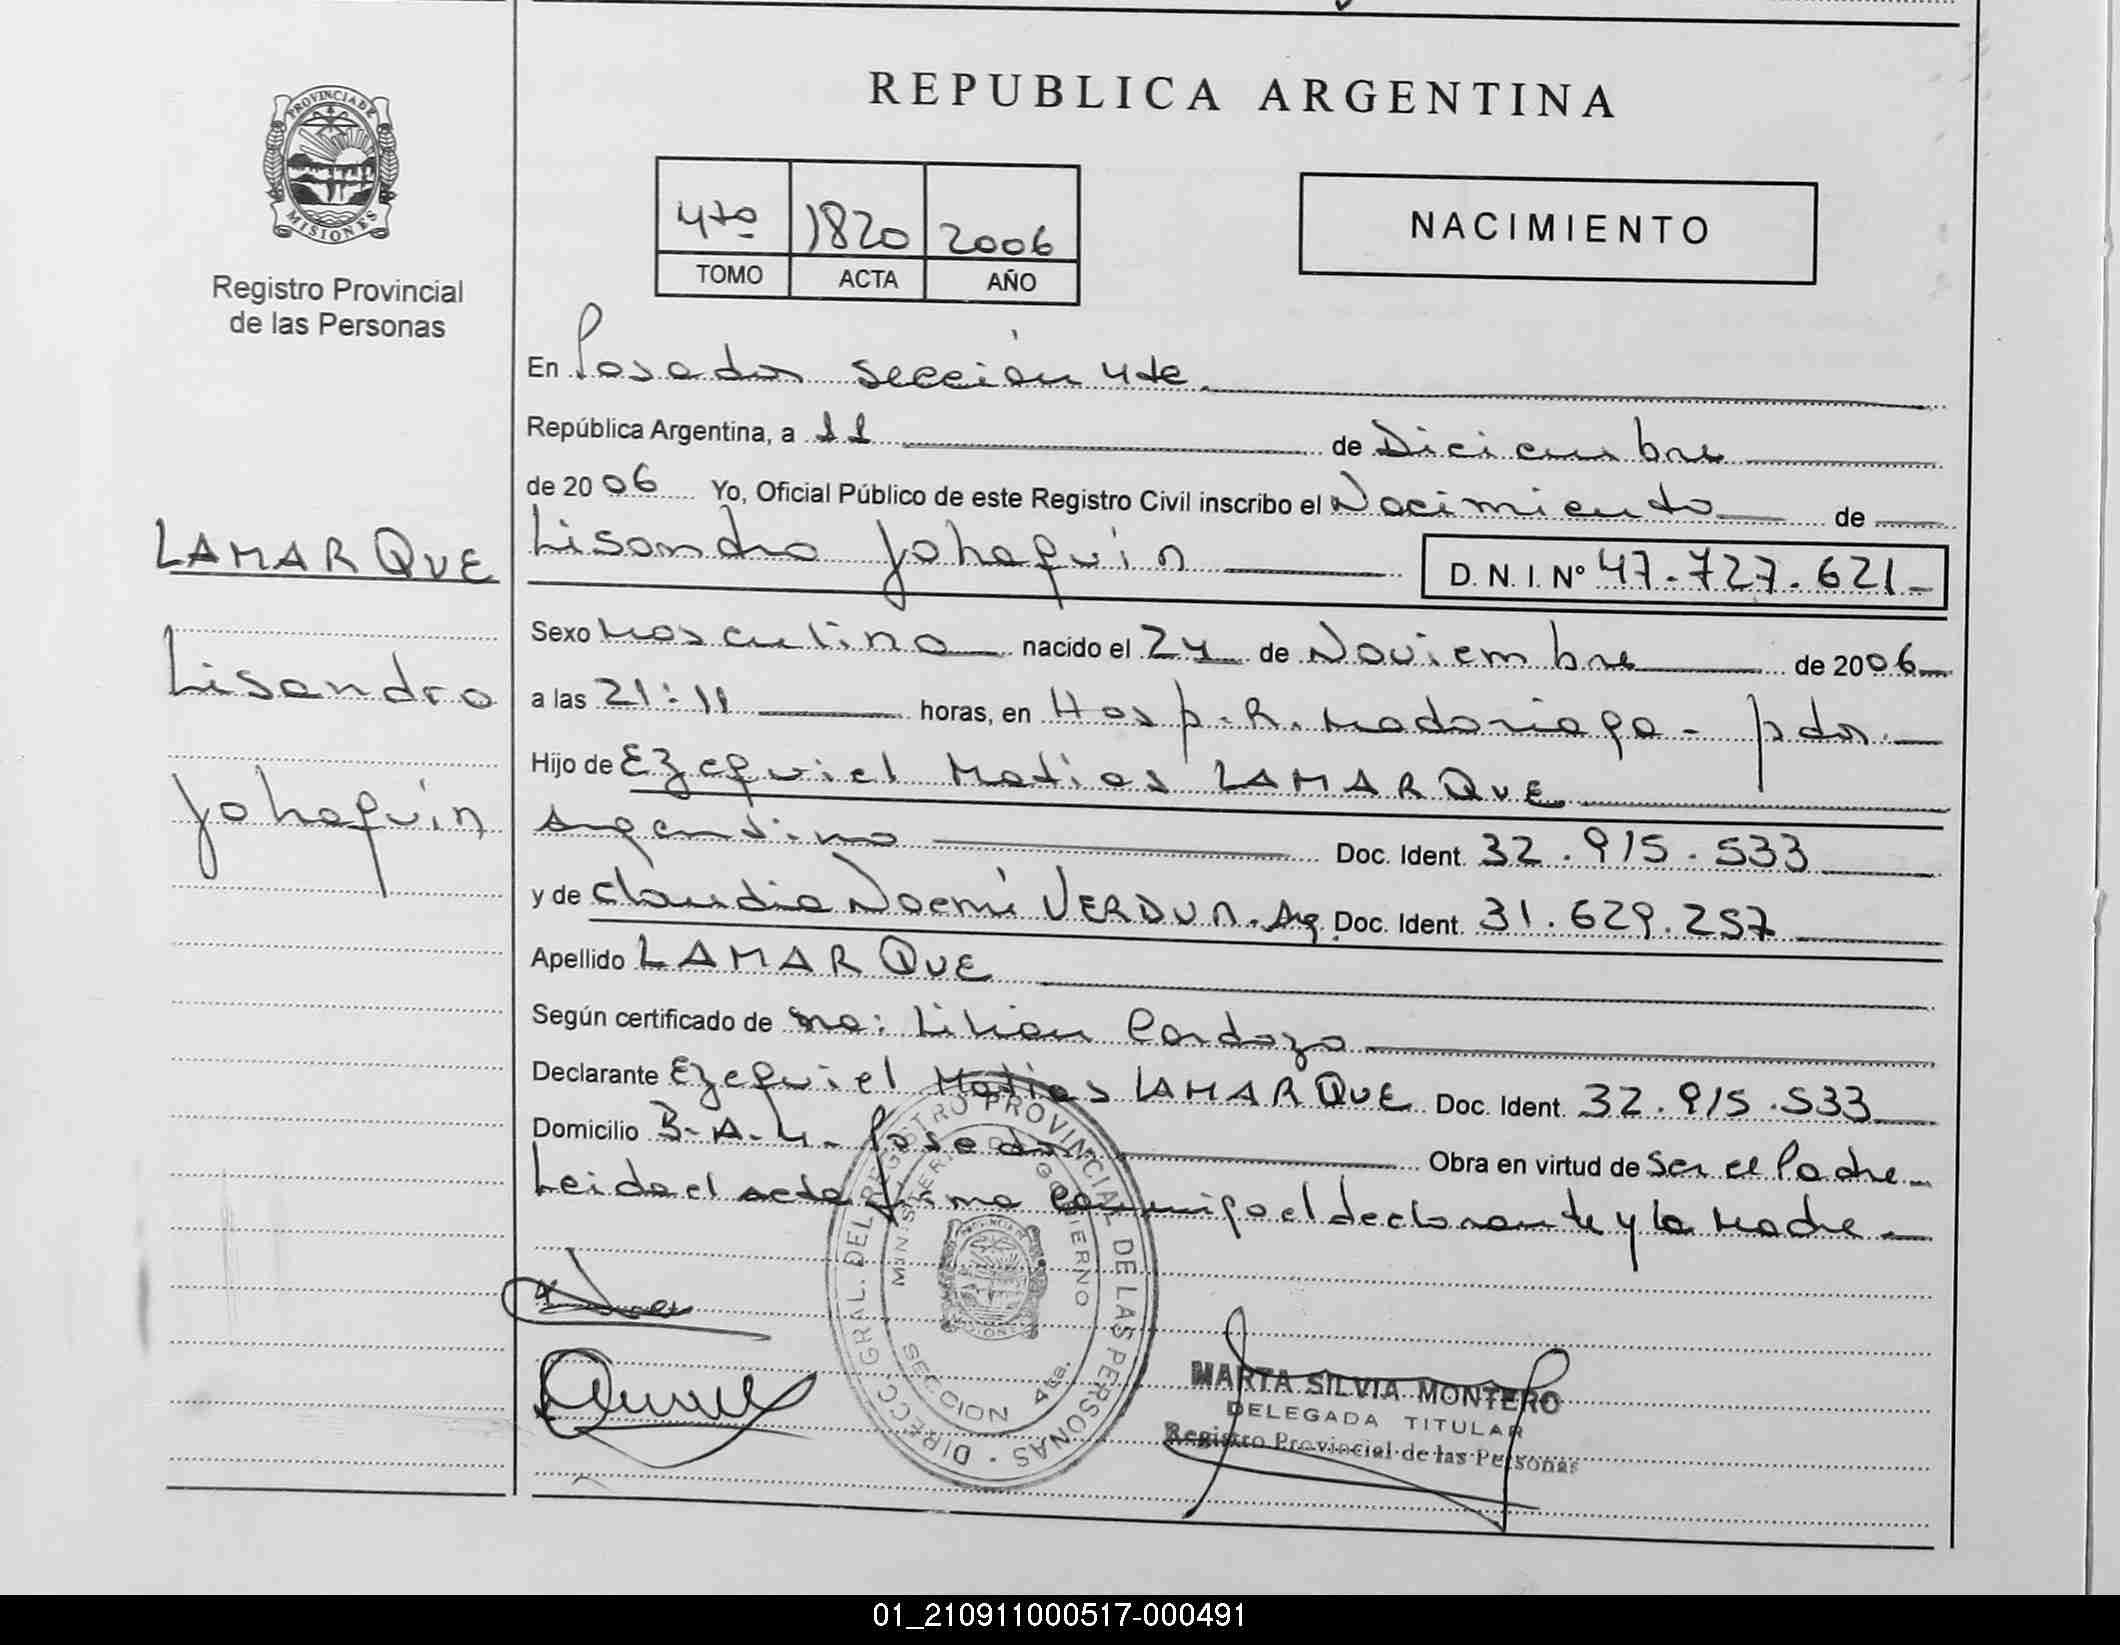 REPUBLICA ARGENTINA
PROVINCIA DE
MISIONES
Registro Provincial
de las Personas
4to 1820 2006
TOMO ACTA AÑO
NACIMIENTO
En Posadas sección 4ta
República Argentina, a 11 de Diciembre
de 2006 Yo, Oficial Público de este Registro Civil inscribo el Nacimiento de
LAMARQUE
Lisandro
Johaquin
Lisandro Johaquin D. N. I. Nº 47.727.621-
Sexo Masculino nacido el 24 de Noviembre de 2006
a las 21:11 horas, en Hosp. R. Madariaga - pdas.
Hijo de Ezequiel Matias LAMARQUE
Argentino Doc. Ident. 32.915.533
y de Claudia Noemí VERDUN. Arg. Doc. Ident. 31.629.257
Apellido LAMARQUE
Según certificado de Lilian Cardozo
Declarante Ezequiel Matias LAMARQUE Doc. Ident. 32.915.533
Domicilio B-A-4- Posadas Obra en virtud de ser el Padre
Leida el acta firma conmigo el declarante y la Madre
DIRECC. GRAL. DEL REGISTRO PROVINCIAL DE LAS PERSONAS
MINISTERIO DE GOBIERNO
SECCION 4ta.
MARTA SILVIA MONTERO
DELEGADA TITULAR
Registro Provincial de las Personas
01_210911000517-000491